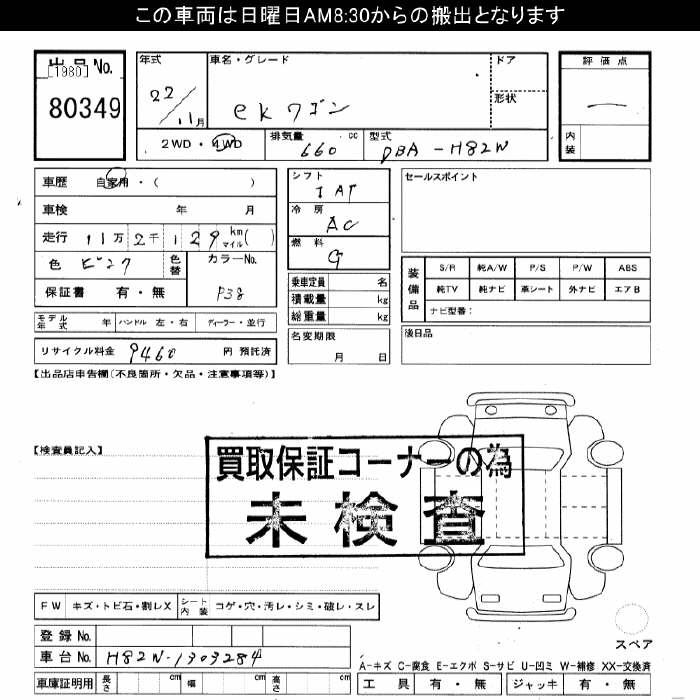 この車両は日曜日AM8:30からの搬出となります
出品No.
[1980]
80349
年式
22/11月
車名・グレード
ekワゴン
ドア
形状
評価点
内装
2WD・4WD
排気量
660 cc
型式
DBA-H82W
車歴 自家用・( )
車検 年 月
走行 11万2千129km マイル( )
色 ピンク
色替
カラーNo.
P38
保証書 有・無
シフト
IAT
冷房
AC
燃料
G
セールスポイント
装備品
S/R 純A/W P/S P/W ABS
純TV 純ナビ 革シート 外ナビ エアB
ナビ型番:
乗車定員 名
積載量 kg
総重量 kg
モデル年式 年 ハンドル 左・右 ディーラー・並行
名変期限
月 日
後日品
リサイクル料金 9460 円 預託済
【出品店申告欄(不良箇所・欠品・注意事項等)】
【検査員記入】
買取保証コーナーの為
未検査
FW キズ・トビ石・割レX シート内装 コゲ・穴・汚レ・シミ・破レ・スレ
スペア
登録No.
車台No. H82W-1303284
A-キズ C-腐食 E-エクボ S-サビ U-凹ミ W-補修 XX-交換済
車庫証明用 長さ cm 幅 cm 高さ cm
工具 有・無 ジャッキ 有・無